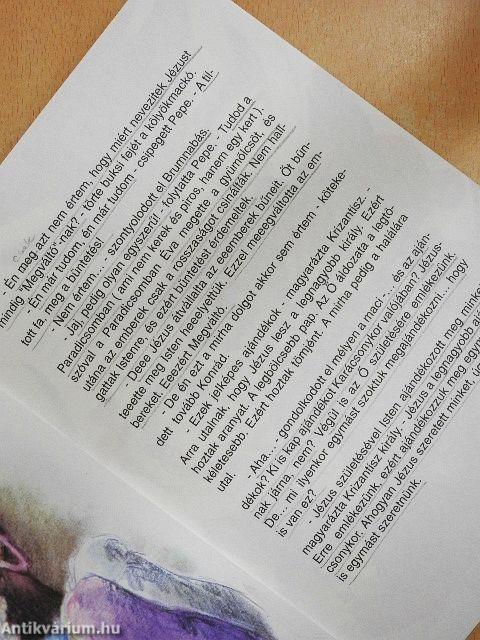 - Én meg azt nem értem, hogy miért nevezitek Jézust
mindig "Megváltó"-nak? - törte buksi fejét a kölyökmackó.
- Én már tudom, én már tudom - csipegett Pepe. - A til-
tott fa, meg a büntetés!
- Nem értem... - szontyolodott el Brumnabás.
- Jaj, pedig olyan egyszerű! - folytatta Pepe. - Tudod a
Paradicsomban ( ami nem kerek és piros, hanem egy kert ),
szóval a Paradicsomban Éva megette a gyümölcsöt, és
utána az emberek csak a rosszaságot csinálták. Nem hall-
gattak Istenre, és ezért büntetést érdemeltek.
- Deee Jézus átvállalta az eeemberek bűneit. Őt bün-
teeette meg Isten heeelyettük. Ezzel meeegváltotta az em-
bereket. Eeezért Megváltó.
- De én ezt a mirha dolgot akkor sem értem - köteke-
dett tovább Konrád.
- Ezek jelképes ajándékok - magyarázta Krizantisz. -
Arra utalnak, hogy Jézus lesz a legnagyobb király. Ezért
hoztak aranyat. A legbölcsebb pap. Az Ő áldozata a legtö-
kéletesebb. Ezért hoztak tömjént. A mirha pedig a halálára
utal.
- Aha... - gondolkodott el mélyen a maci. - ... és az aján-
dékok? Ki is kap ajándékot Karácsonykor valójában? Jézus-
nak járna, nem? Végül is az Ő születésére emlékezünk.
De... mi ilyenkor egymást szoktuk megajándékozni... hogy
is van ez?
- Jézus születésével Isten ajándékozott meg minket
magyarázta Krizantisz király - Jézus a legnagyobb
Erre emlékezünk, ezért ajándékozzuk meg egymást
csonykor. Ahogyan Jézus szeretett minket, úgy
is egymást szeretnünk.
Antikvárium.hu